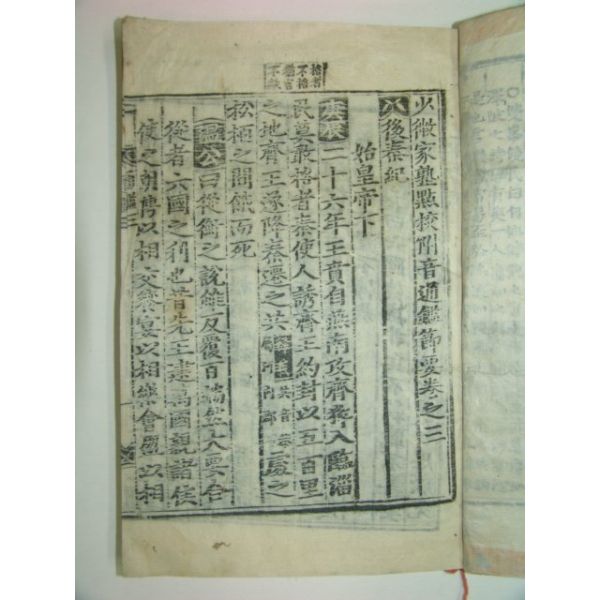 少微家塾點校附音通鑑節要卷之三
後秦紀
始皇帝下
庚辰二十六年王賁自燕南攻齊猝入臨淄
民莫敢格者秦使人誘齊王約封以五百里
之地齊王遂降秦遷之共處之
松栢之間餓而死
溫公曰從衡之說雖反覆百端然大要合
從者六國之利也昔先王建萬國親諸侯
使之朝聘以相交饗宴以相樂會盟以相